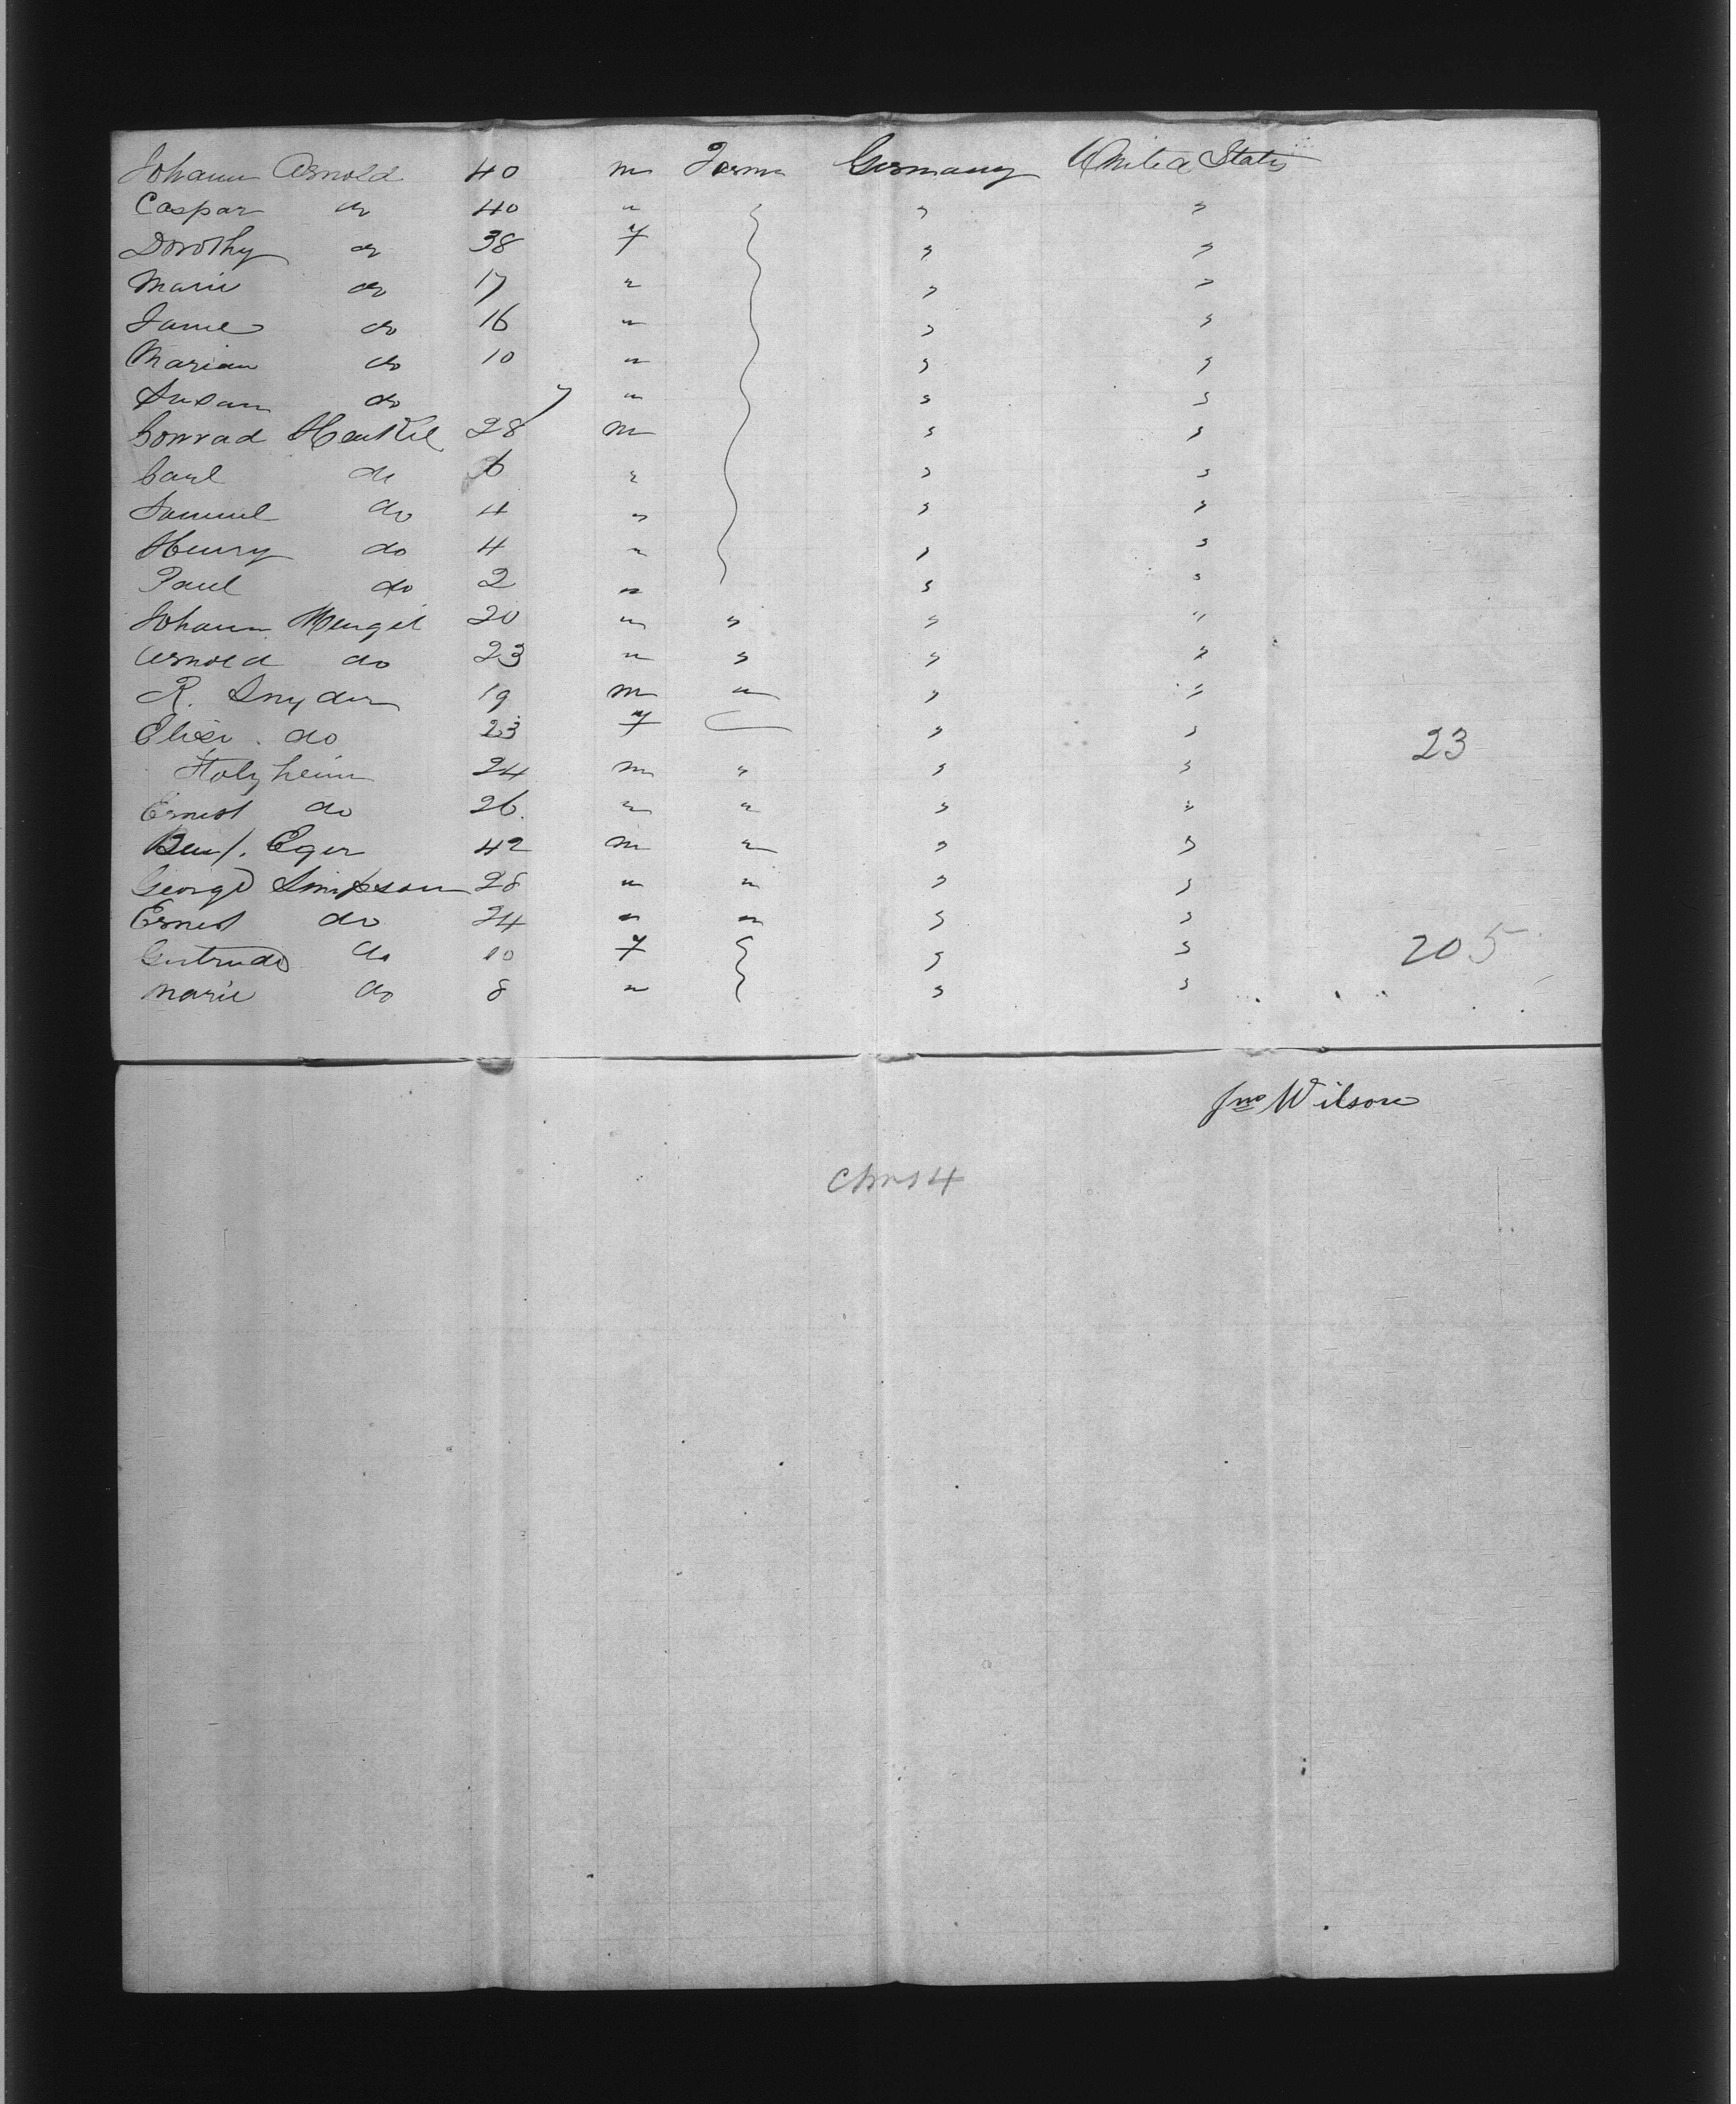 Johann Arnold 40 m Farm Germany United States
Caspar do 40 " " "
Dorothy do 38 f " "
Marie do 17 " " "
Jane do 16 " " "
Marian do 10 " " "
Susan do 7 " " "
Conrad Henkel 28 m " "
Carl do 6 " " "
Samuel do 4 " " "
Henry do 4 " " "
Paul do 2 " " "
Johann Mengel 20 " " " "
Arnold do 23 " " " "
R. Snyder 19 m " " "
Elise do 23 f " " 23
Holzheim 24 m " " "
Ernest do 26. " " " "
Benj. Eger 42 m " " "
George Simpson 28 " " " "
Ernest do 24 " " " "
Gertrude do 10 f " " 205
Marie do 8 " " "
Jno Wilson